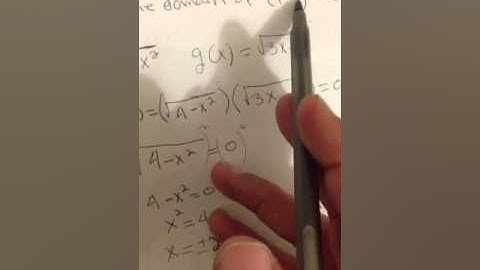 domain of
x² g(x) = √3x
= (√4-x²)(√3x = 0
√4-x² )² = (0)²
4-x² = 0
x² = 4
x = ±2